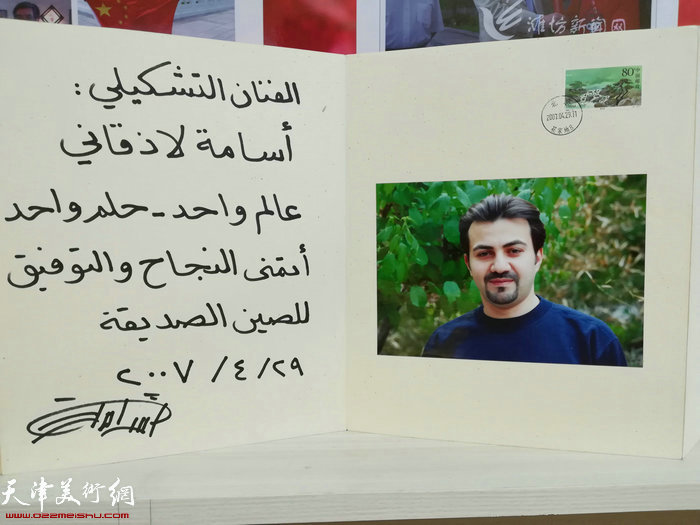 الفنان التشكيلي :
أسامة لاذقاني
عالم واحد - حلم واحد
أتمنى النجاح والتوفيق
للصين الصديقة
٢٠٠٧ / ٤ / ٢٩
潍坊新闻网
80
2007.04.29.11
天津美術網
www.022meishu.com